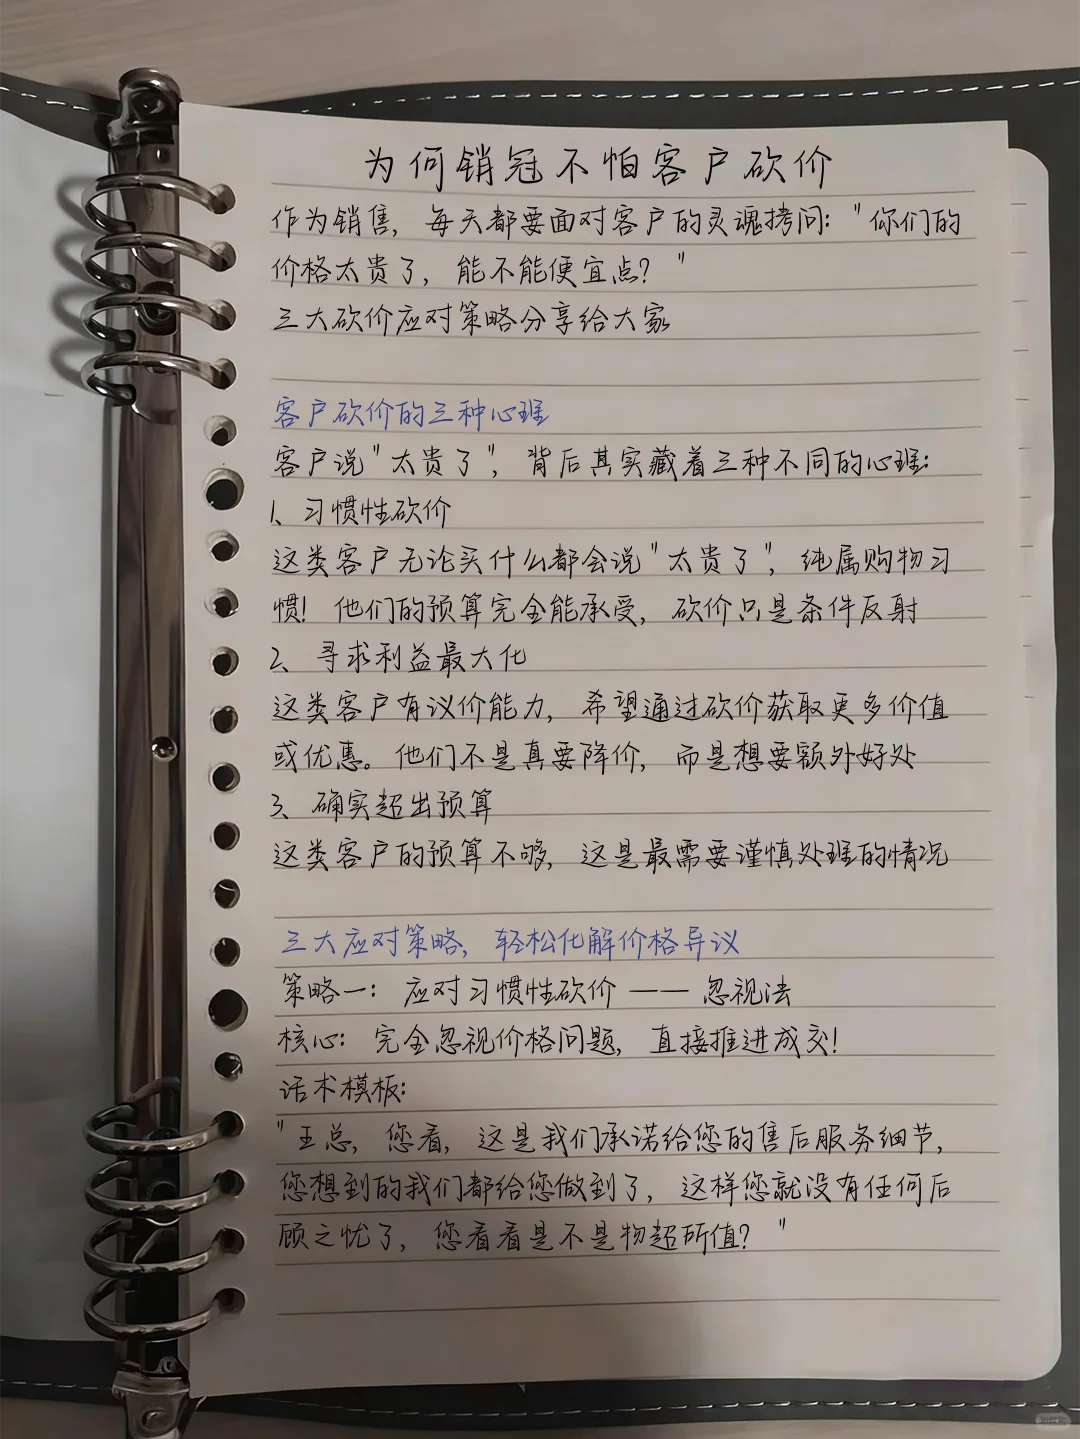 为何销冠不怕客户砍价
作为销售，每天都要面对客户的灵魂拷问："你们的
价格太贵了，能不能便宜点？"
三大砍价应对策略分享给大家
客户砍价的三种心理
客户说"太贵了"，背后其实藏着三种不同的心理：
1、习惯性砍价
这类客户无论买什么都会说"太贵了"，纯属购物习
惯！他们的预算完全能承受，砍价只是条件反射
2、寻求利益最大化
这类客户有议价能力，希望通过砍价获取更多价值
或优惠。他们不是真要降价，而是想要额外好处
3、确实超出预算
这类客户的预算不够，这是最需要谨慎处理的情况
三大应对策略，轻松化解价格异议
策略一：应对习惯性砍价——忽视法
核心：完全忽视价格问题，直接推进成交！
话术模板：
"王总，您看，这是我们承诺给您的售后服务细节，
您想到的我们都给您做到了，这样您就没有任何后
顾之忧了，您看看是不是物超所值？"